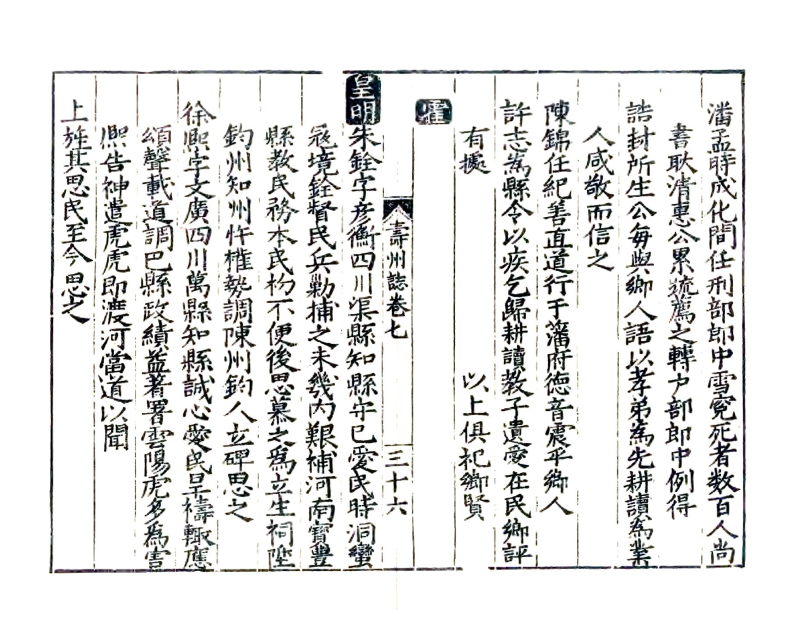 潘孟時成化間任刑部郎中雪寃死者数百人尚
書耿清惠公累䟽薦之轉户部郎中例得
誥封所生公每與鄉人語以孝弟為先耕讀為業
人咸敬而信之
陳錦任紀善直道行于藩府德音震乎鄉人
許志為縣令以疾乞歸耕讀教子遺愛在民鄉評
有據 以上俱祀鄉賢
宦
壽州誌卷七 三十六
皇明
朱銓字彦衡四川渠縣知縣守己愛民時洞蠻
寇境銓督民兵勦捕之未幾内艱補河南寶豐
縣教民務本民初不便後思慕之為立生祠陞
鈞州知州忤權勢調陳州鈞人立碑思之
徐熈字文廣四川萬縣知縣誠心愛民旱禱輙應
頌聲載道調巴縣政績益著署雲陽虎多為害
熈告神遣虎虎即渡河當道以聞
上旌其思民至今思之